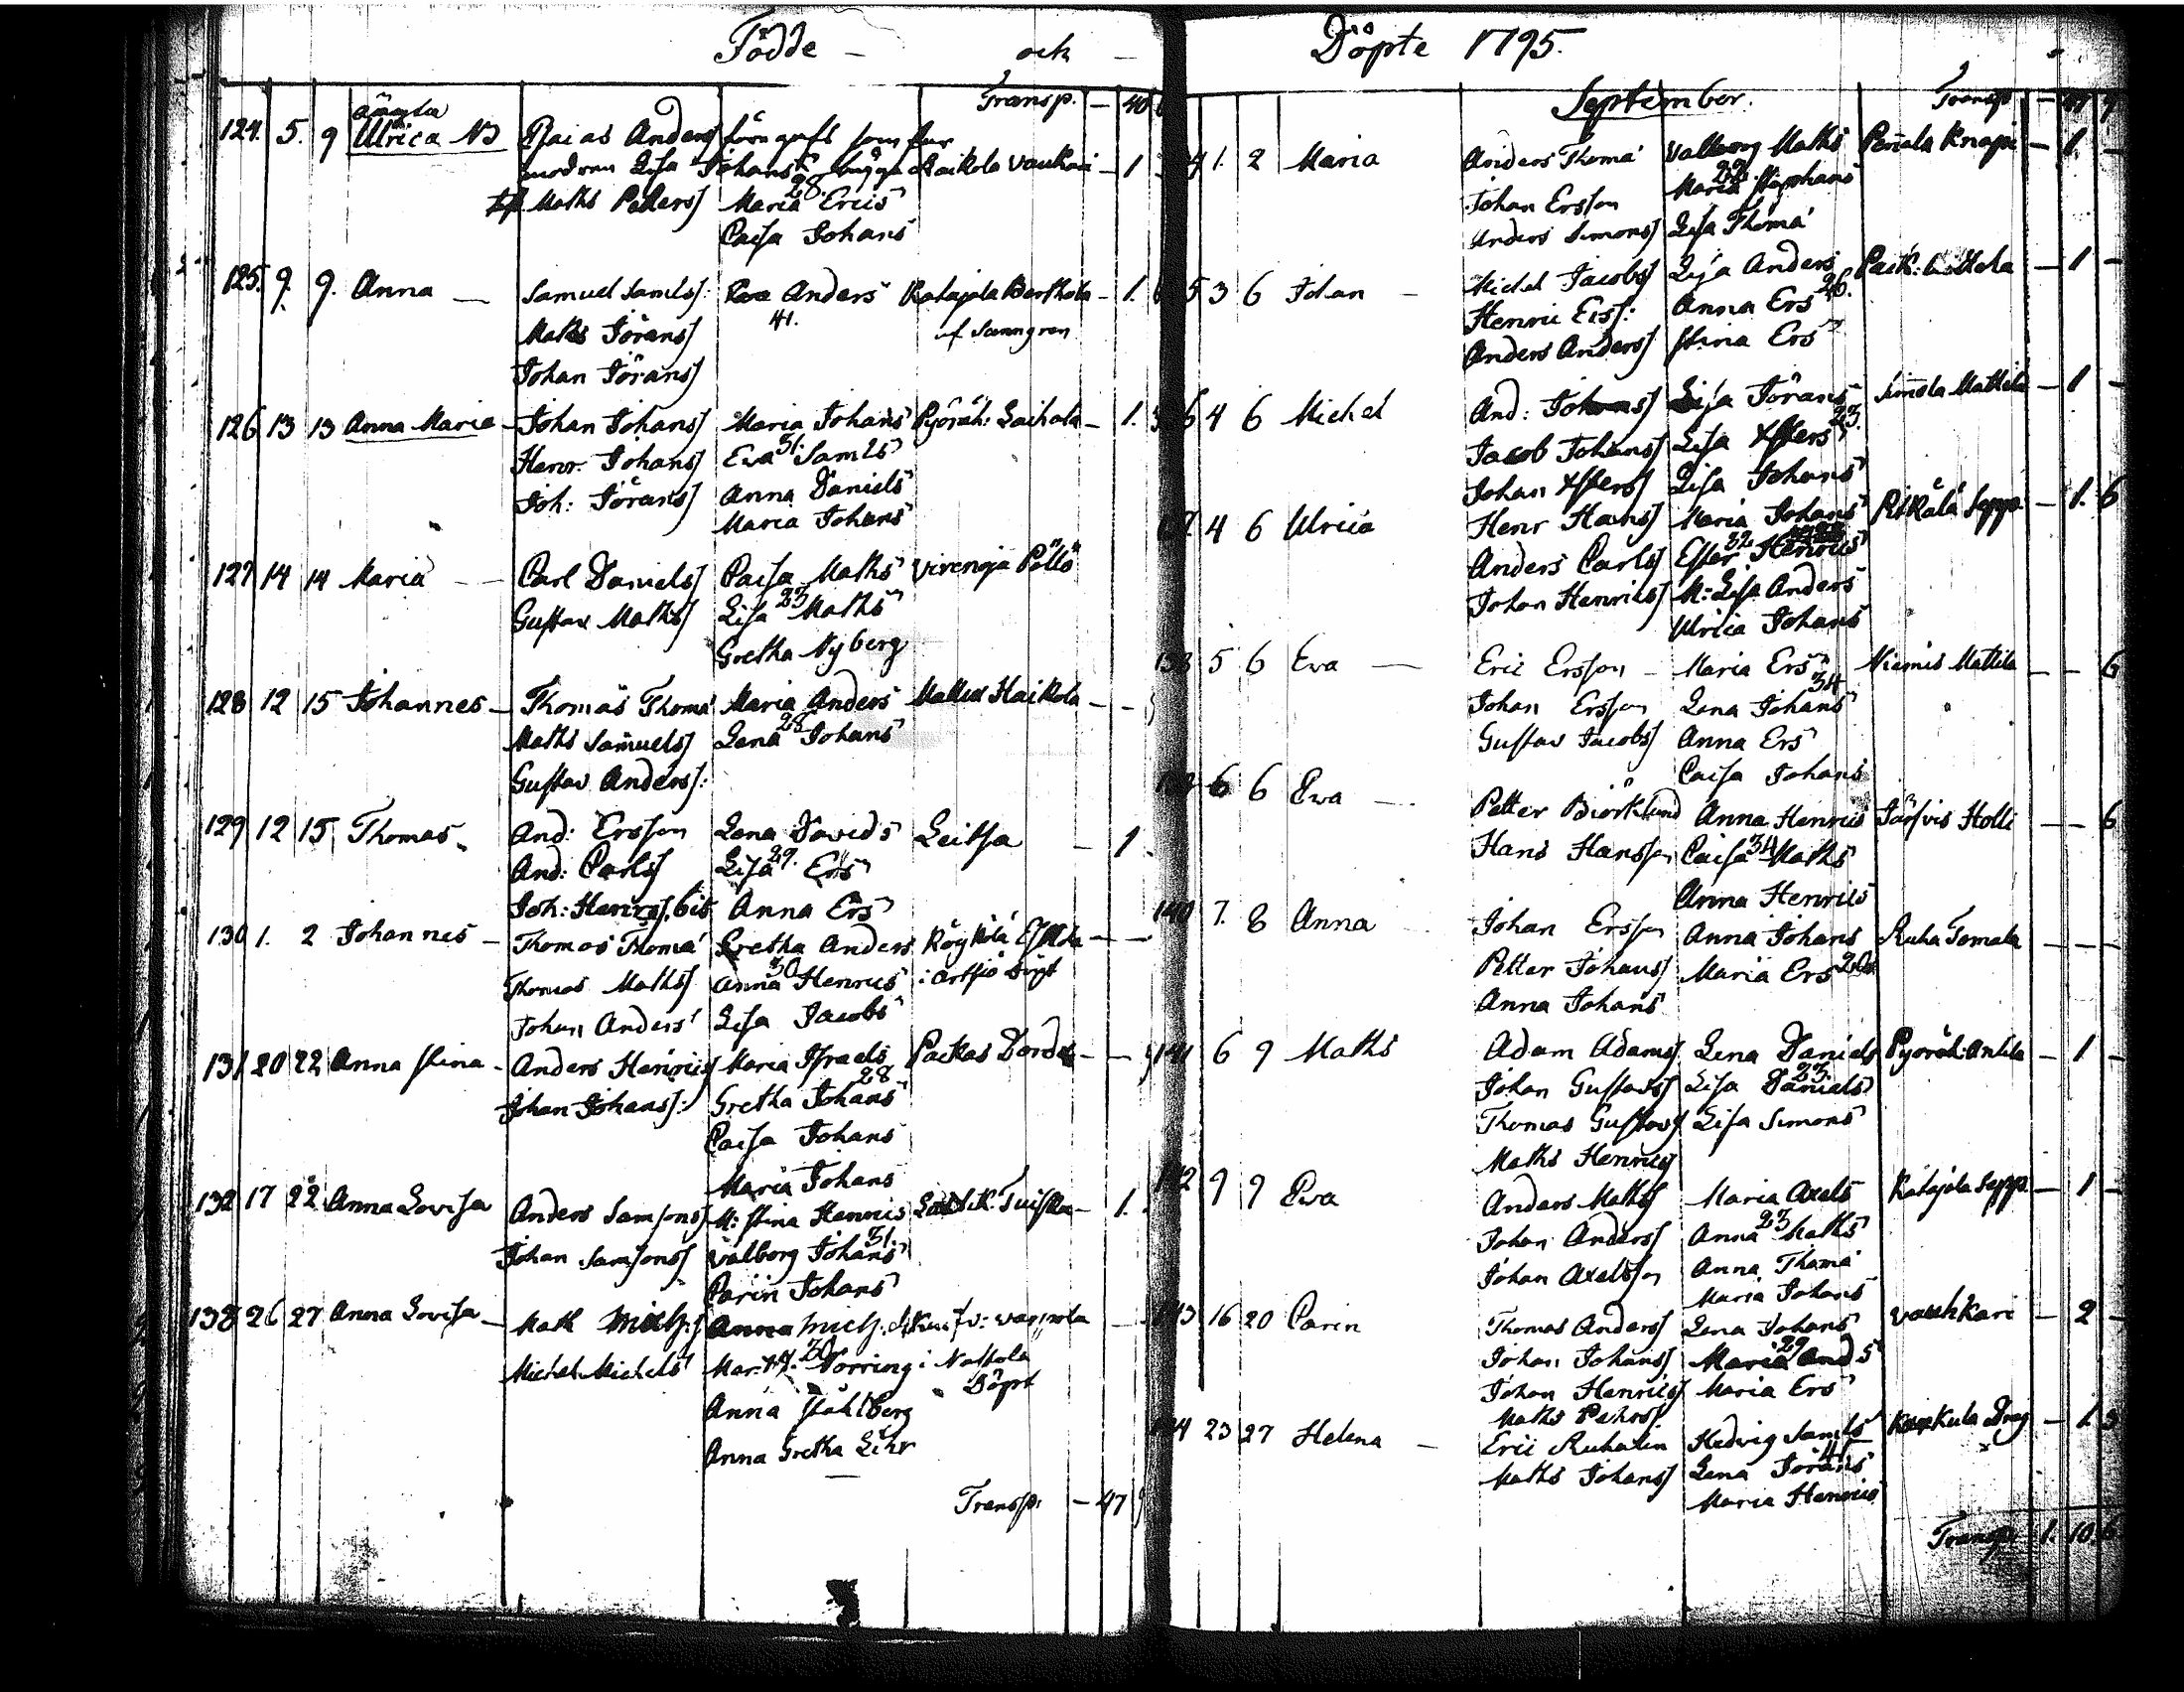 Födde — och —
Transp. — 40
124. 5. 9 oägta Ulrica NB Esaias Anders
modren Lisa Johans Raikola Vaukari — 1
Maths Petters Maria 28 Erics
Caisa Johans
125. 9. 9. Anna — Samuel Samls: Eva Anders Katajala Berthola — 1.
Maths Jörans 41.
Johan Jörans
126 13 13 Anna Maria — Johan Johans Maria Johans Pyöräh: Laihola — 1.
Henr. Johans Eva 31. Samls
Joh: Jörans Anna Daniels
Maria Johans
127 14 14 Maria — — Carl Daniels Caisa Maths Virenoja Pöllö
Gustav Maths Lisa 23 Maths
Gretha Nyberg
128 12 15 Johannes — Thomas Thoma Maria Anders Haikola — —
Maths Samuels Lena 28 Johans
Gustav Anders:
129 12 15 Thomas And: Ersson Lena Davids Leitsa — 1
And: Carls Lisa 29. Ers
Joh: Henrs. Anna Ers
130 1. 2 Johannes — Thomas Thoma Gretha Anders — —
Thomas Maths Anna 30 Henrics i Artsiö Döpt
Johan Anders Lisa Jacobs
131 20 22 Anna Stina — Anders Henrics Maria Israels — —
Johan Johans: Gretha 28 Johans
Caisa Johans
Maria Johans
132 17 22 Anna Lovisa Anders Samsons M: Stina Henrics — 1.
Johan Samsons Valborg 31. Johans
Carin Johans
133 26 27 Anna Lovisa — Math Mich: Anna Mich:
Michel Michels 30 Norring i Nattola
Döpt
Anna Ståhlberg
Anna Gretha Lihr
Transp: — 47
Döpte 1795.
September. Transp — 47 9
1. 2 Maria Anders Thoma Valborg Maths Penala Knapi — 1. —
Johan Ersson Maria 22. Stephans
Anders Simons Lisa Thoma
5 3 6 Johan — Michel Jacobs Lisa Anders — 1 —
Henric Ers: Anna Ers 26.
Anders Anders Stina Ers
6 4 6 Michel And: Johans Lisa Jörans Simola Mattila — 1 —
Jacob Johans Lisa 23.
Johan Lisa Johans
4 6 Ulrica Henr Hans Maria Johans Pitkälä Sepp. — 1. 6
Anders Carls Ester 32 Henrics
Johan Henrics M: Lisa Anders
Ulrica Johans
138 5 6 Eva — Eric Ersson — Maria Ers Niemis Mattila — — 6
Johan Ersson Lena 34 Johans
Gustav Jacobs Anna Ers
Caisa Johans
6 6 Eva — Petter Biörklund Anna Henrics Järfvis Holli — — 6
Hans Hansson Caisa 34 Maths
Anna Henrics
140 7. 8 Anna Johan Ersson Anna Johans Ruha Tomala — — —
Petter Johans Maria Ers 20
Anna Johans
141 6 9 Maths Adam Adams Lena Daniels Pyöräh: Antila — 1 —
Johan Gustavs Lisa 23. Daniels
Thomas Gustavs Lisa Simons
Maths Henrics
142 9 9 Eva Anders Maths Maria Axels Katajala Sepp. — 1 —
Johan Anders Anna 23 Maths
Johan Axelsson Anna Thoma
Maria Johans
143 16 20 Carin Thomas Anders Lena Johans Vauhkari — 2 —
Johan Johans Maria 29 And s
Johan Henrics Maria Ers
Maths Pehrs.
144 23 27 Helena — Eric Ruhalin Hedvig Samls — 1. 3
Maths Johans Lena 41 Jörans
Maria Henrics
Transp. 1. 10. 6